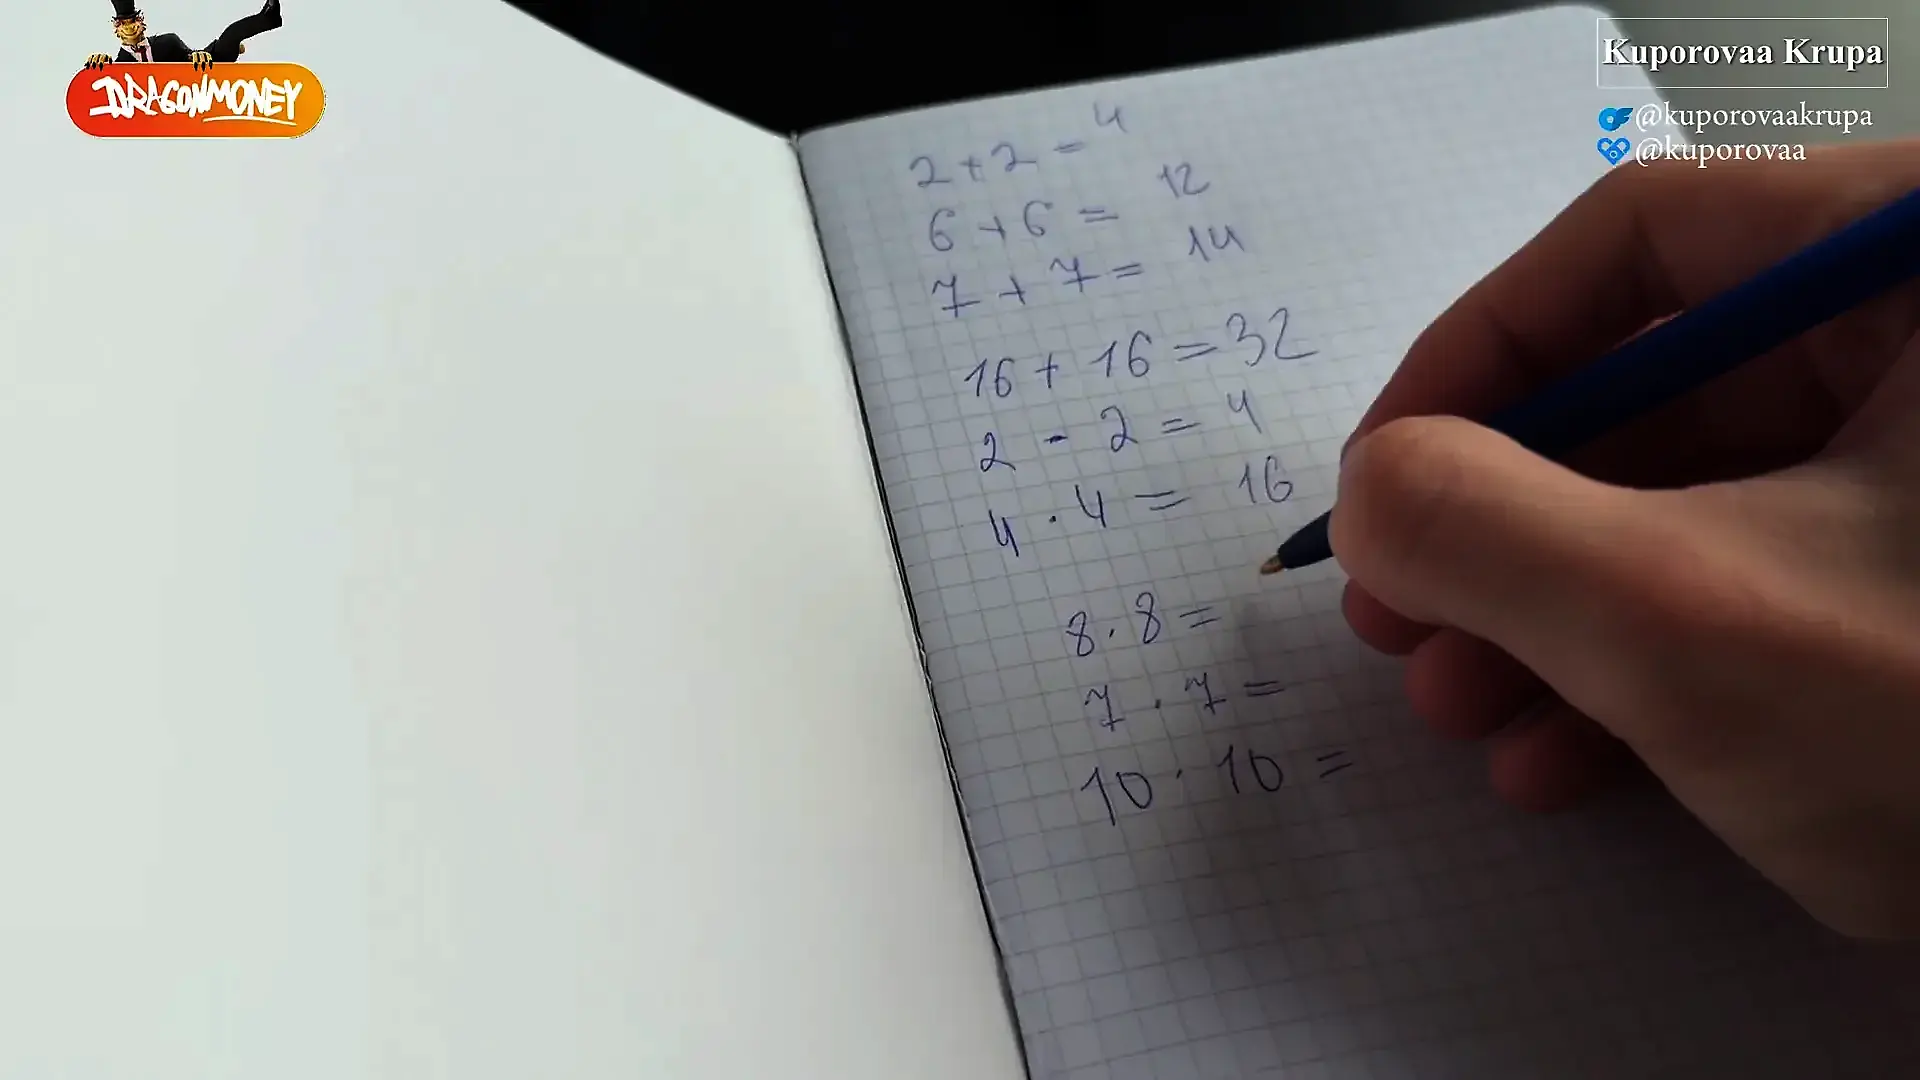 DRAGONMONEY
Kuporovaa Krupa
@kuporovaakrupa
@kuporovaa
2 + 2 = 4
6 + 6 = 12
7 + 7 = 14
16 + 16 = 32
2 - 2 = 4
4 · 4 = 16
8 · 8 =
7 · 7 =
10 · 10 =